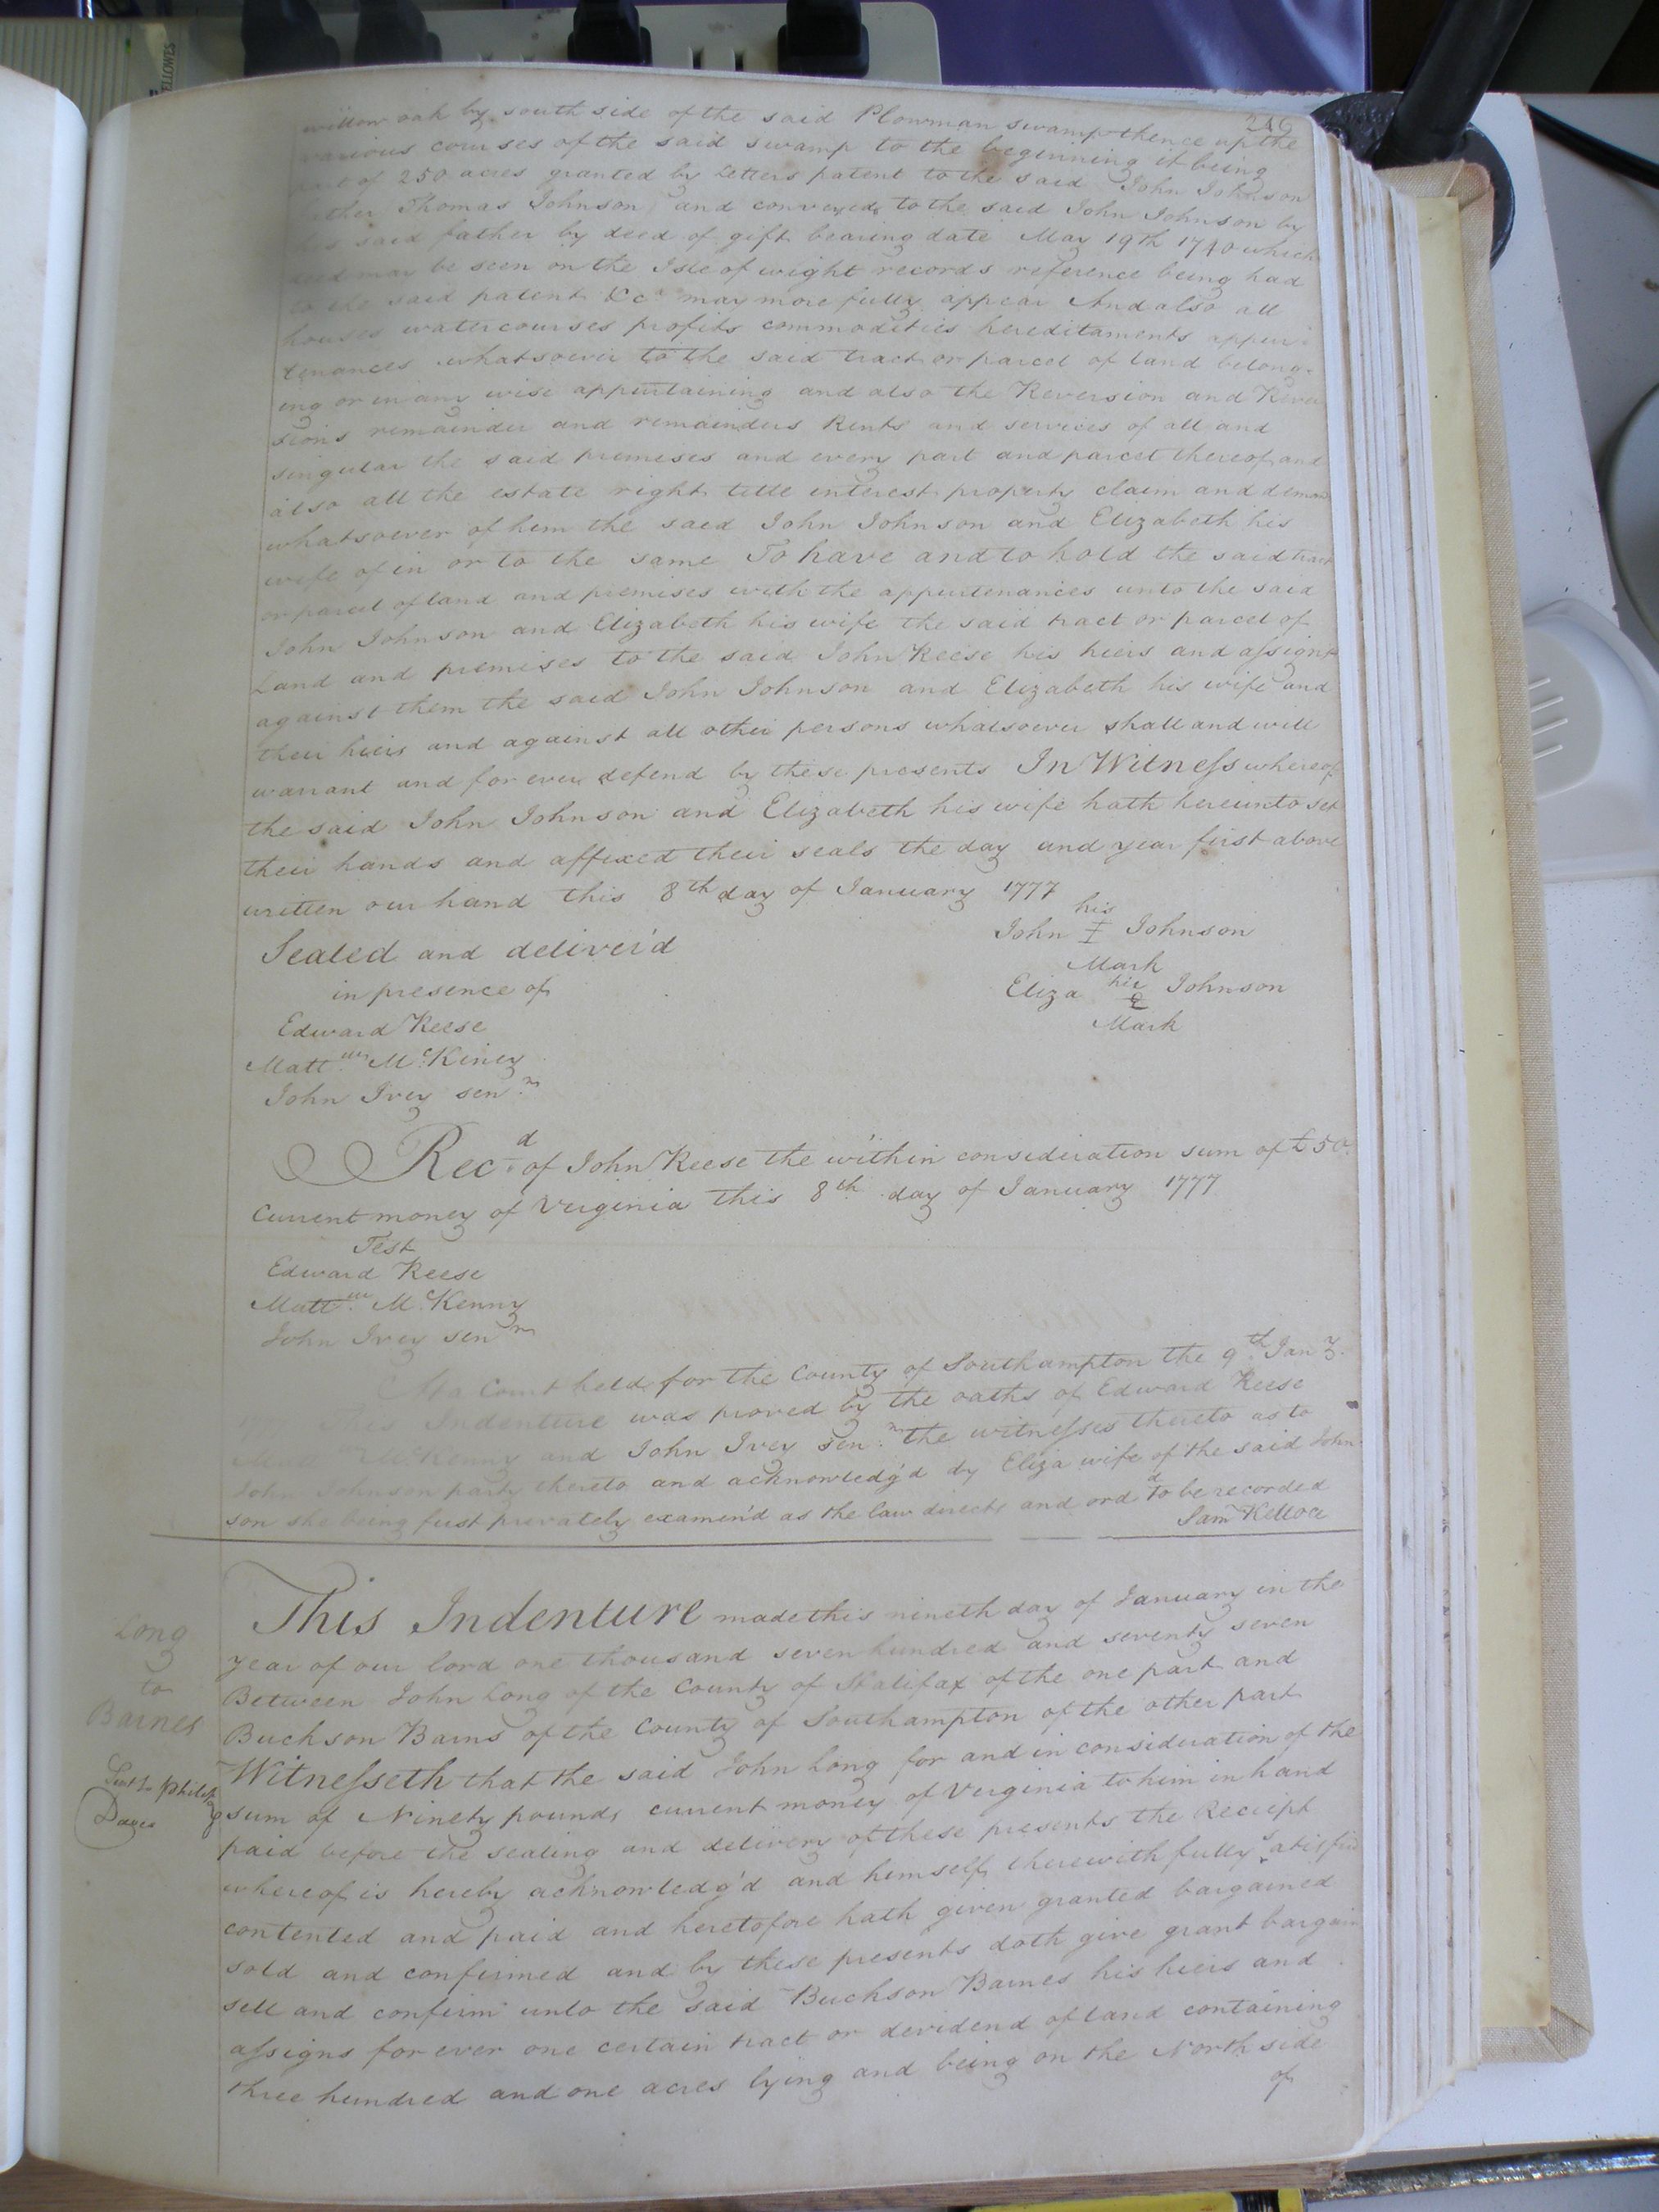 246
willow oak by south side of the said Plowman swamp thence up the
various courses of the said swamp to the beginning it being
part of 250 acres granted by Letters patent to the said John Johnson
father Thomas Johnson and conveyed to the said John Johnson by
his said father by deed of gift bearing date May 19th 1740 which
deed may be seen on the Isle of wight records reference being had
to the said patent &c may more fully appear And also all
houses watercourses profits commodities hereditaments appur
tenances whatsoever to the said tract or parcel of land belong
ing or in any wise appurtaining and also the Reversion and Rever
sions remainder and remainders Rents and services of all and
singular the said premeses and every part and parcel thereof and
also all the estate right title interest property claim and deman
whatsoever of him the said John Johnson and Elizabeth his
wife of in or to the same To have and to hold the said tract
or parcel of land and premises with the appurtenances unto the said
John Johnson and Elizabeth his wife the said tract or parcel of
Land and premises to the said John Reese his hiers and assigns
against them the said John Johnson and Elizabeth his wife and
their hiers and against all other persons whatsoever shall and will
warrant and for ever defend by these presents In Witness whereof
the said John Johnson and Elizabeth his wife hath hereunto set
their hands and affixed their seals the day and year first above
written our hand this 8th day of January 1777
his
John I Johnson
Mark
Sealed and deliver'd
her
Eliza Johnson
Mark
in presence of
Edward Reese
Mattw McKiney
John Ivey senr
Recd of John Reese the within consideration sum of £50
Current money of Virginia this 8th day of January 1777
Test
Edward Reese
Mattw McKenny
John Ivey senr
At a Court held for the County of Southampton the 9th Jany
This Indenture was proved by the oaths of Edward Reese
McKenny and John Ivey senr the witnesses thereto as to
John Johnson party thereto and acknowledg'd by Eliza wife of the said John
son she being first privately examen'd as the law directs and ordd to be recorded
Saml Kelloce
Long
to
Barnes
Phillip
This Indenture made this nineth day of January in the
year of our lord one thousand seven hundred and seventy seven
Between John Long of the County of Halifax of the one part and
Buckson Barns of the County of Southampton of the other part
Witnesseth that the said John Long for and in consideration of the
sum of Ninety pounds current money of Virginia to him in hand
paid before the sealing and delivery of these presents the Reciept
whereof is hereby acknowledg'd and himself therewith fully satisfied
contented and paid and heretofore hath given granted bargained
sold and confirmed and by these presents doth give grant bargain
sell and confirm unto the said Buckson Barnes his hiers and
assigns for ever one certain tract or devidend of land containing
three hundred and one acres lying and being on the North side
of